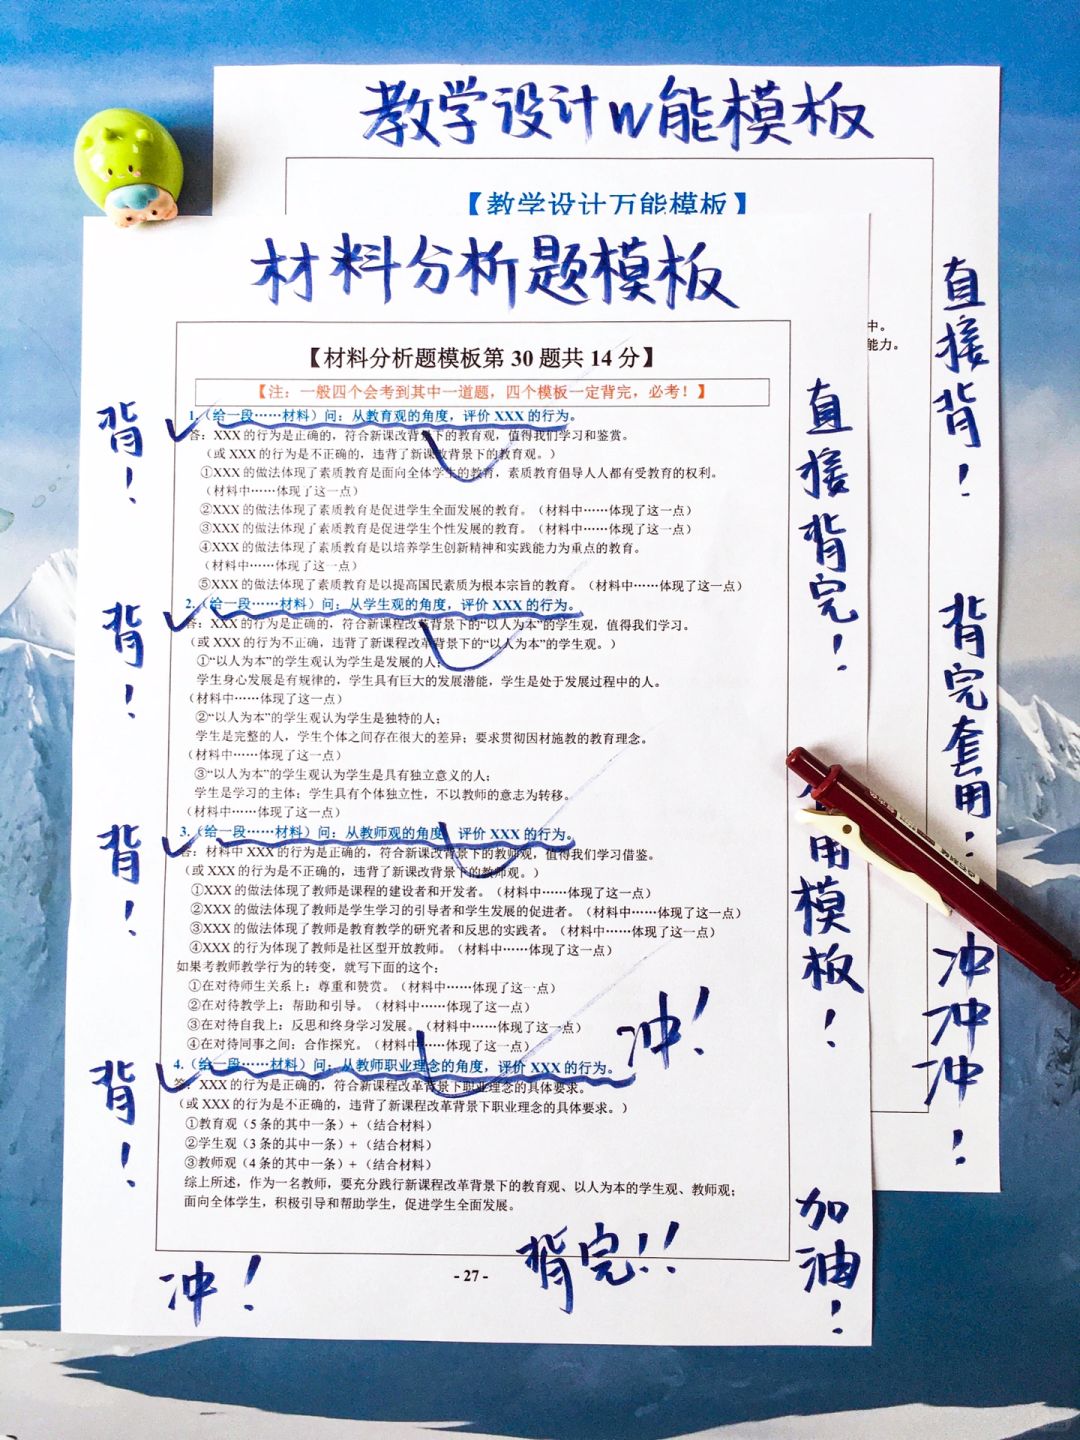 教学设计W能模板
【教学设计万能模板】
中。
能力。
直接背！
背完套用：
冲冲冲！
材料分析题模板
【材料分析题模板第 30 题共 14 分】
【注：一般四个会考到其中一道题，四个模板一定背完，必考！】
1.（给一段……材料）问：从教育观的角度，评价 XXX 的行为。
答：XXX 的行为是正确的，符合新课改背景下的教育观，值得我们学习和鉴赏。
（或 XXX 的行为是不正确的，违背了新课改背景下的教育观。）
①XXX 的做法体现了素质教育是面向全体学生的教育，素质教育倡导人人都有受教育的权利。
（材料中……体现了这一点）
②XXX 的做法体现了素质教育是促进学生全面发展的教育。（材料中……体现了这一点）
③XXX 的做法体现了素质教育是促进学生个性发展的教育。（材料中……体现了这一点）
④XXX 的做法体现了素质教育是以培养学生创新精神和实践能力为重点的教育。
（材料中……体现了这一点）
⑤XXX 的做法体现了素质教育是以提高国民素质为根本宗旨的教育。（材料中……体现了这一点）
2.（给一段……材料）问：从学生观的角度，评价 XXX 的行为。
答：XXX 的行为是正确的，符合新课程改革背景下的“以人为本”的学生观，值得我们学习。
（或 XXX 的行为不正确，违背了新课程改革背景下的“以人为本”的学生观。）
①“以人为本”的学生观认为学生是发展的人；
学生身心发展是有规律的，学生具有巨大的发展潜能，学生是处于发展过程中的人。
（材料中……体现了这一点）
②“以人为本”的学生观认为学生是独特的人；
学生是完整的人，学生个体之间存在很大的差异；要求贯彻因材施教的教育理念。
（材料中……体现了这一点）
③“以人为本”的学生观认为学生是具有独立意义的人；
学生是学习的主体；学生具有个体独立性，不以教师的意志为转移。
（材料中……体现了这一点）
3.（给一段……材料）问：从教师观的角度，评价 XXX 的行为。
答：材料中 XXX 的行为是正确的，符合新课改背景下的教师观，值得我们学习借鉴。
（或 XXX 的行为是不正确的，违背了新课改背景下的教师观。）
①XXX 的做法体现了教师是课程的建设者和开发者。（材料中……体现了这一点）
②XXX 的做法体现了教师是学生学习的引导者和学生发展的促进者。（材料中……体现了这一点）
③XXX 的做法体现了教师是教育教学的研究者和反思的实践者。（材料中……体现了这一点）
④XXX 的行为体现了教师是社区型开放教师。（材料中……体现了这一点）
如果考教师教学行为的转变，就写下面的这个：
①在对待师生关系上：尊重和赞赏。（材料中……体现了这一点）
②在对待教学上：帮助和引导。（材料中……体现了这一点）
③在对待自我上：反思和终身学习发展。（材料中……体现了这一点）
④在对待同事之间：合作探究。（材料中……体现了这一点）
4.（给一段……材料）问：从教师职业理念的角度，评价 XXX 的行为。
答：XXX 的行为是正确的，符合新课程改革背景下职业理念的具体要求。
（或 XXX 的行为是不正确的，违背了新课程改革背景下职业理念的具体要求。）
①教育观（5 条的其中一条）+（结合材料）
②学生观（3 条的其中一条）+（结合材料）
③教师观（4 条的其中一条）+（结合材料）
综上所述，作为一名教师，要充分践行新课程改革背景下的教育观、以人为本的学生观、教师观；
面向全体学生，积极引导和帮助学生，促进学生全面发展。
- 27 -
背！
背！
背！
背！
直接背完！
用模板！
加油！
冲！
冲！
背完！！